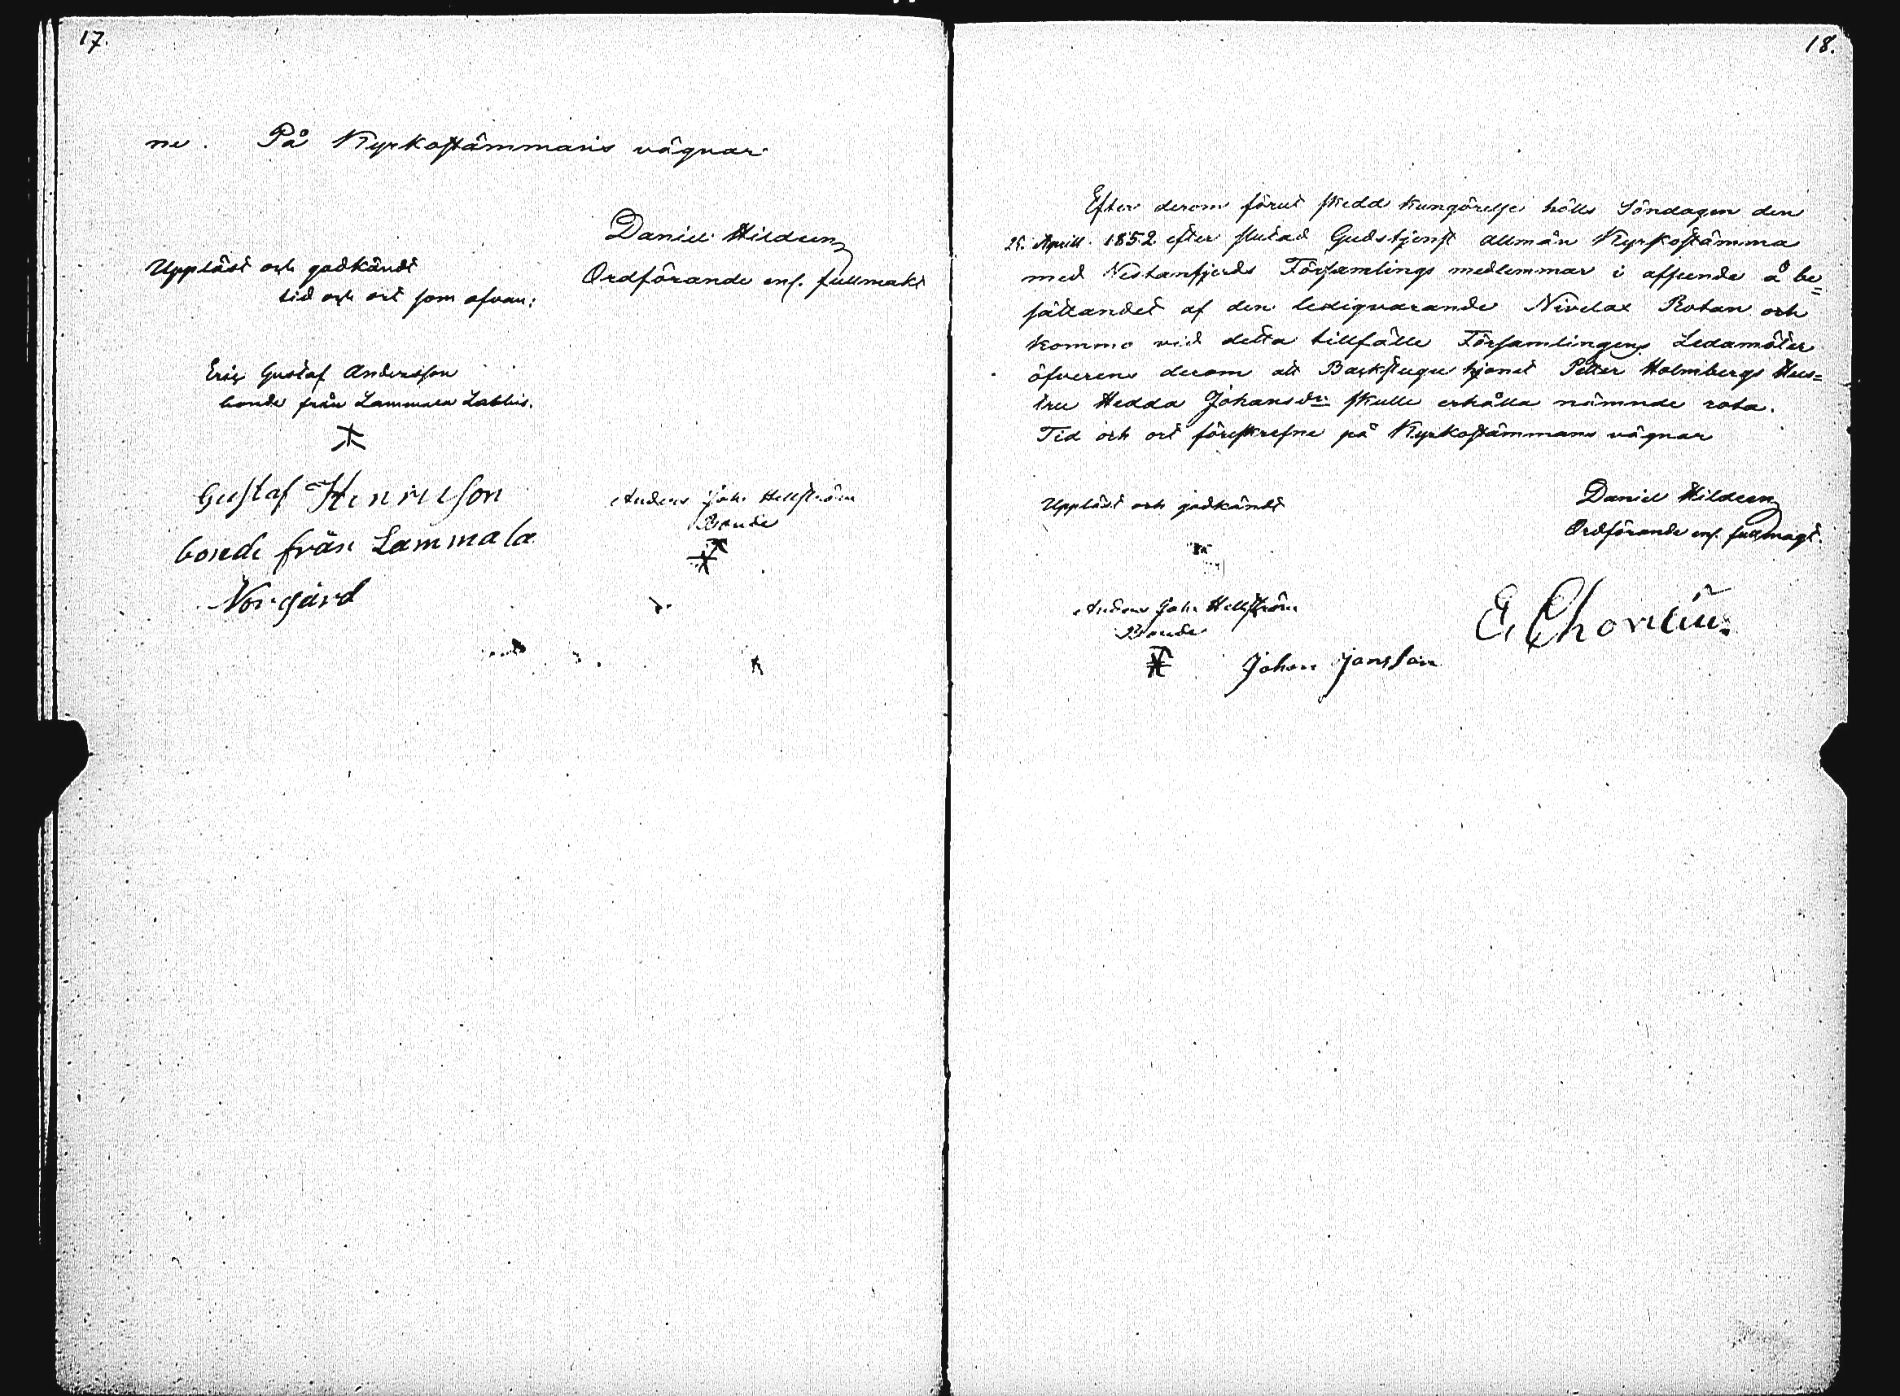 17.
ne. På Kyrkostämmans vägnar
Daniel Hildeen
Ordförande enl. fullmakt
Uppläst och godkändt
tid och ort som ofvan:
Eric Gustaf Andersson
bonde från Lammala Labbis.
Gustaf Henricson
bonde från Lammala
Norgård
Anders Joh: Hellström
Bonde
18.
Efter derom förut skedd kungörelse hölls Söndagen den
25. Aprill 1852 efter slutad Gudstjenst allmän Kyrkostämma
med Vestanfjerds Församlings medlemmar i afseende å be=
sättandet af den ledigvarande Nivelax Rotan och
kommo vid detta tillfälle Församlingens Ledamöter
öfverens derom att Backstugu hjonet Petter Holmbergs Hus=
tru Hedda Johansdr skulle erhålla nämnde rota.
Tid och ort föreskrefne på Kyrkostämmans vägnar
Daniel Hildeen
Ordförande enl. fullmagt.
Uppläst och godkändt
Anders Joh: Hellström
Bonde
E. Chorelius
Johan Jansson